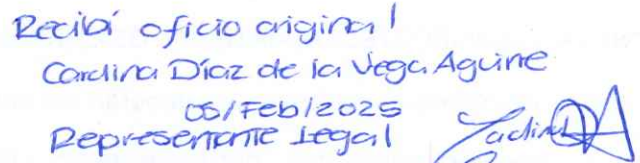 Recibí oficio original
Carolina Díaz de la Vega Aguirre
05/Feb/2025
Representante Legal